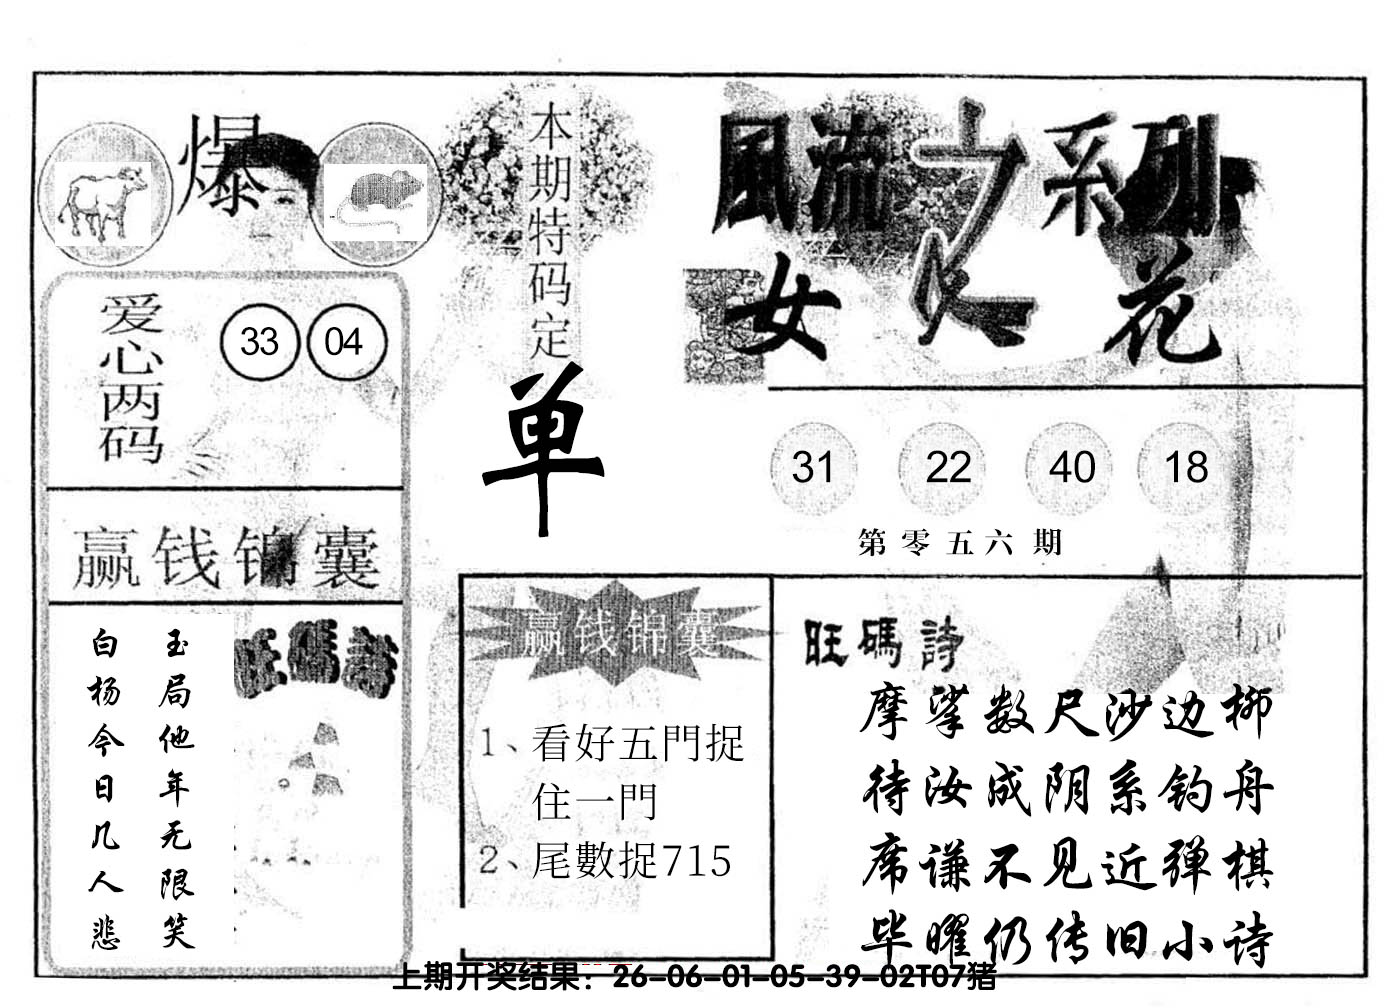 爆
本期特码定
单
風流之系列
女人花
爱心两码
33 04
31 22 40 18
第零五六期
赢钱锦囊
玉局他年无限笑
白杨今日几人悲
旺碼詩
赢钱锦囊
1、看好五門捉
住一門
2、尾數捉715
旺碼詩
摩挲数尺沙边柳
待汝成阴系钓舟
席谦不见近弹棋
毕曜仍传旧小诗
上期开奖结果：26-06-01-05-39-02T07猪